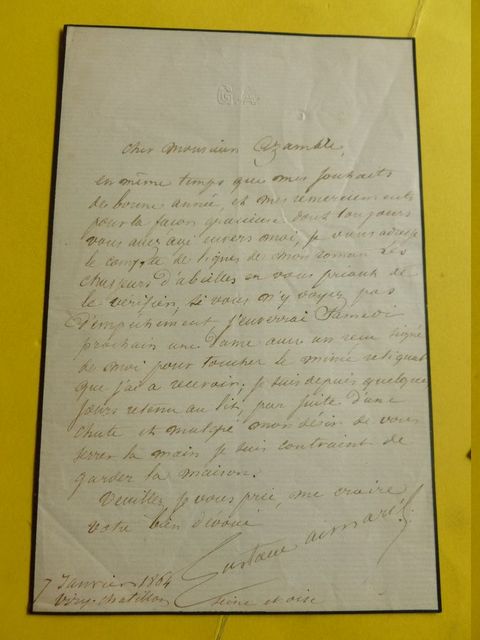 G.A
Cher Monsieur
en même temps que mes souhaits
de bonne année, et mes remerciements
pour la façon gracieuse dont toujours
vous avez agi envers moi, je vous adresse
le compte de lignes de mon roman Les
chasseurs d'abeilles en vous priant de
le vérifier, si vous n'y voyez pas
d'empêchement j'enverrai Samedi
prochain une Dame avec un reçu signé
de moi pour toucher le mince reliquat
que j'ai à recevoir; je suis depuis quelques
jours retenu au lit, par suite d'une
chute et malgré mon désir de vous
serrer la main je suis contraint de
garder la maison.
Veuillez, je vous prie, me croire
votre bien dévoué
Gustave Aimard
7 Janvier 1864
Viry-Chatillon
Seine et oise